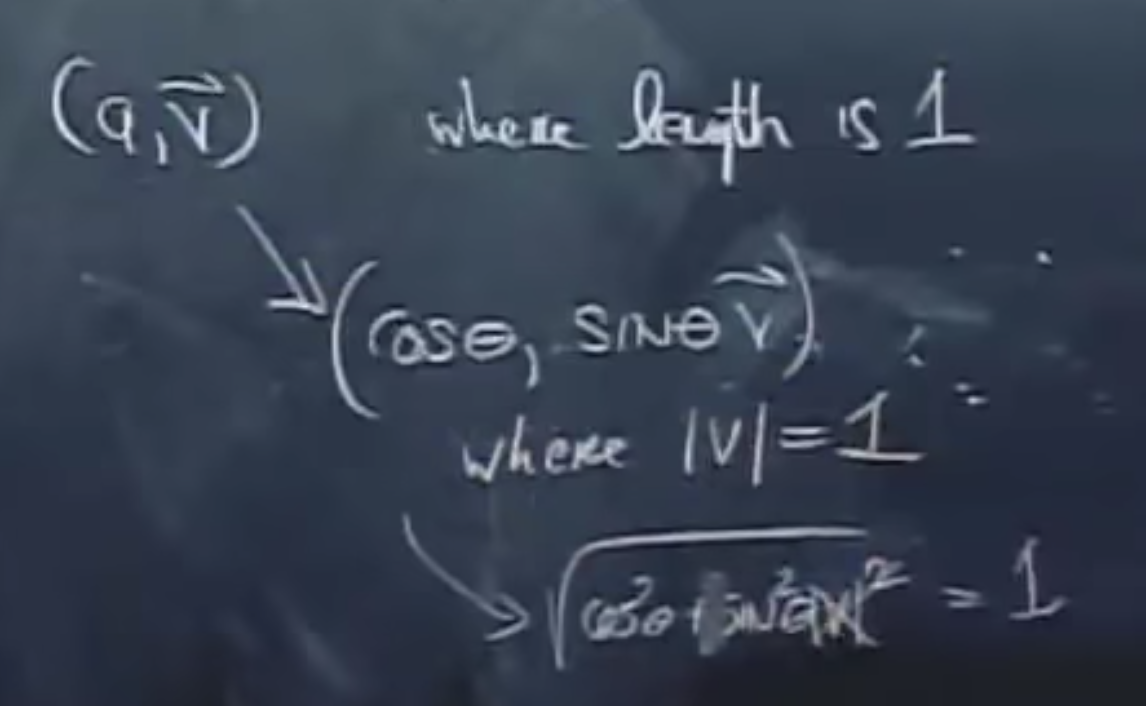 (a, v⃗) where length is 1
(cosθ, sinθ v⃗)
where |v| = 1
√cos²θ + sin²θ|v|² = 1